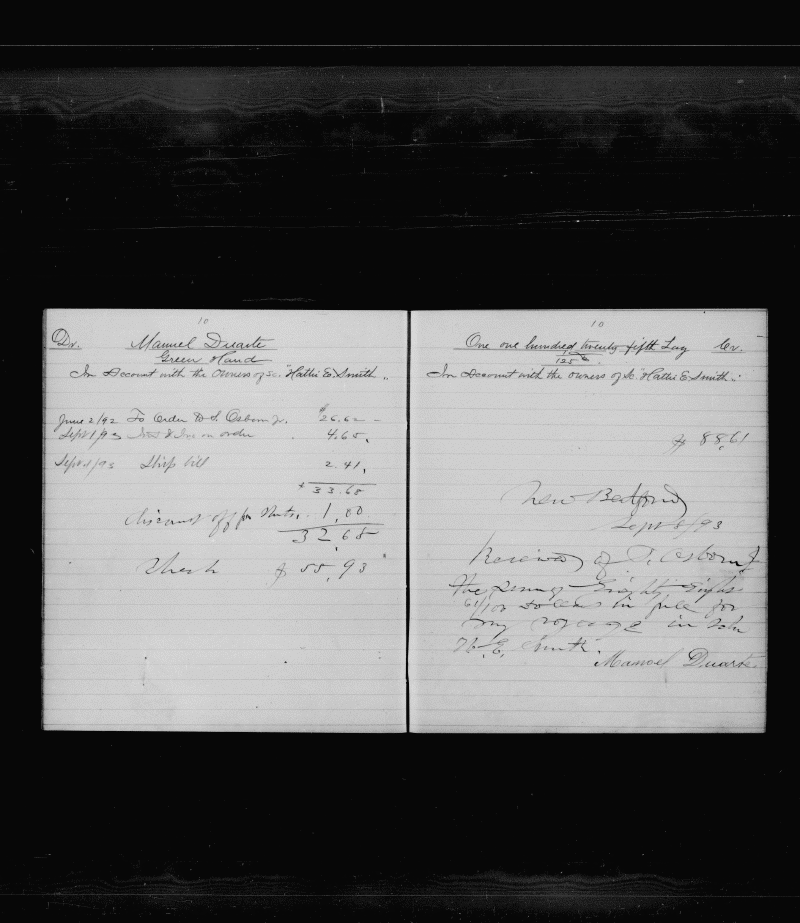 10
Dr. Manuel Duarte
Green Hand
In Account with the Owners of Sc. "Hattie E. Smith"
June 2/92 To Order to S. Osborn Jr. $26.62
Sept 1/93 Inst & Ins on order 4.65
Sept 1/93 Ship bill 2.41
33.68
discount off for Nuts. 1.00
32.68
Check $ 55.93
10
One one hundred twenty fifth Lay Cr.
1/125
In Account with the Owners of Sc "Hattie E. Smith"
$ 88.61
New Bedford
Sept 8/93
Received of S. Osborn Jr
the sum of Eighty Eight
61/100 Dollars in full for
my voyage in Schr
H. E. Smith.
Manoel Duarte